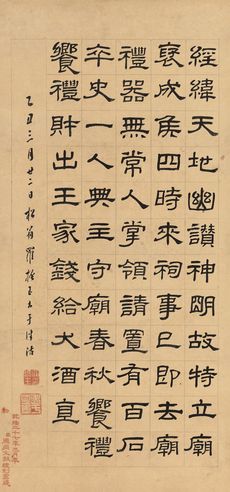 經緯天地幽讚神眀故特立廟
襃成侯四時來祠事已即去廟
禮器無常人掌領請置有百石
卒史一人典主守廟春秋饗禮
饗禮財出王家錢給犬酒直
乙丑三月廿二日松翁羅振玉書于津沽